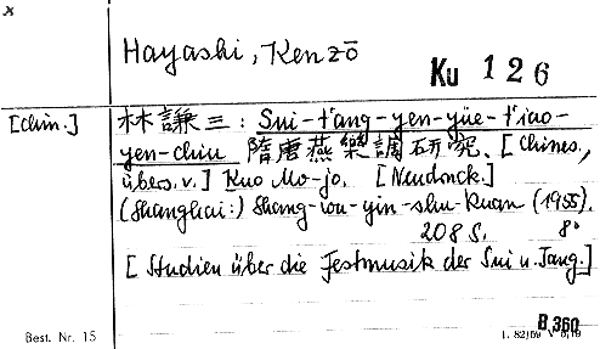 Hayashi, Kenzō
Ku 126
[chin.]
林謙三: Sui-t'ang-yen-yüe-t'iao-
yen-chiu 隋唐燕樂調研究. [Chines.,
übers. v.] Kuo Mo-jo. [Neudruck.]
(Shanghai:) Shang-wu-yin-shu-kuan (1955).
208 S. 8°
[Studien über die Festmusik der Sui u. Tang.]
B 360
Best. Nr. 15